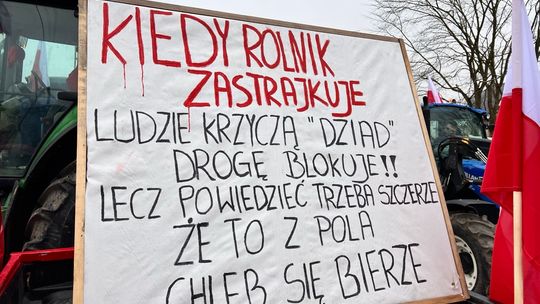 KIEDY ROLNIK
ZASTRAJKUJE
LUDZIE KRZYCZĄ "DZIAD"
DROGĘ BLOKUJE!!
LECZ POWIEDZIEĆ TRZEBA SZCZERZE
ŻE TO Z POLA
CHLEB SIĘ BIERZE